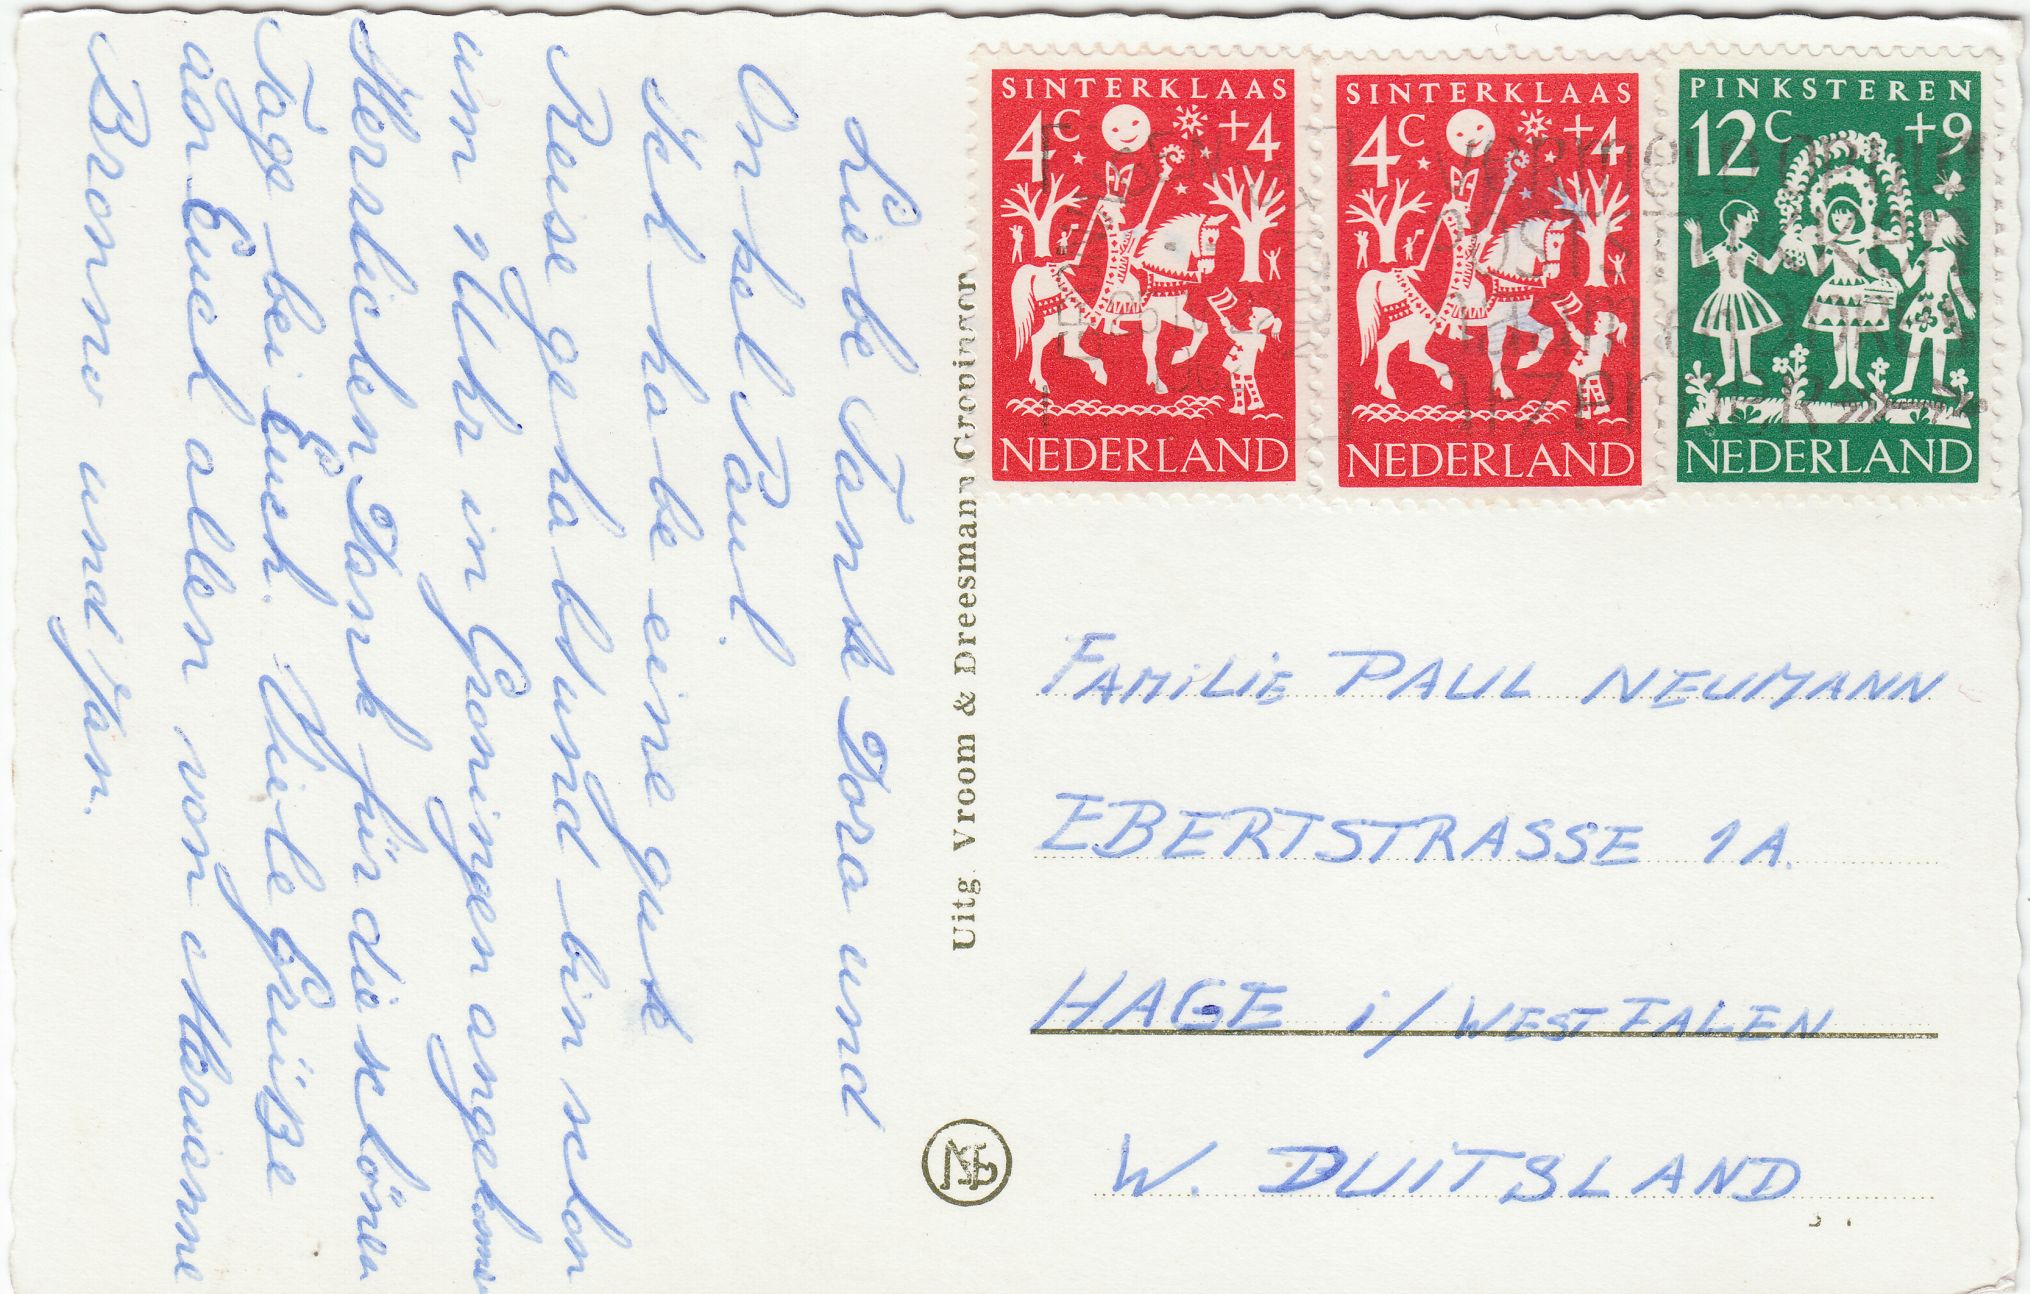 Liebe Tante Dora und
Onkel Paul.
Ich habe eine gute
Reise gehabt und bin schon
um 1 Uhr in Groningen angekommen
Herzlichen Dank für die schönen
Tage bei Euch. Viele Grüße
an Euch allen von Marianne
und Jan.
Uitg. Vroom & Dreesmann Groningen
SINTERKLAAS
4C +4
NEDERLAND
SINTERKLAAS
4C +4
NEDERLAND
PINKSTEREN
12C +9
NEDERLAND
FAMILIE PAUL NEUMANN
EBERTSTRASSE 1A.
HAGE i/WESTFALEN
W. DUITSLAND